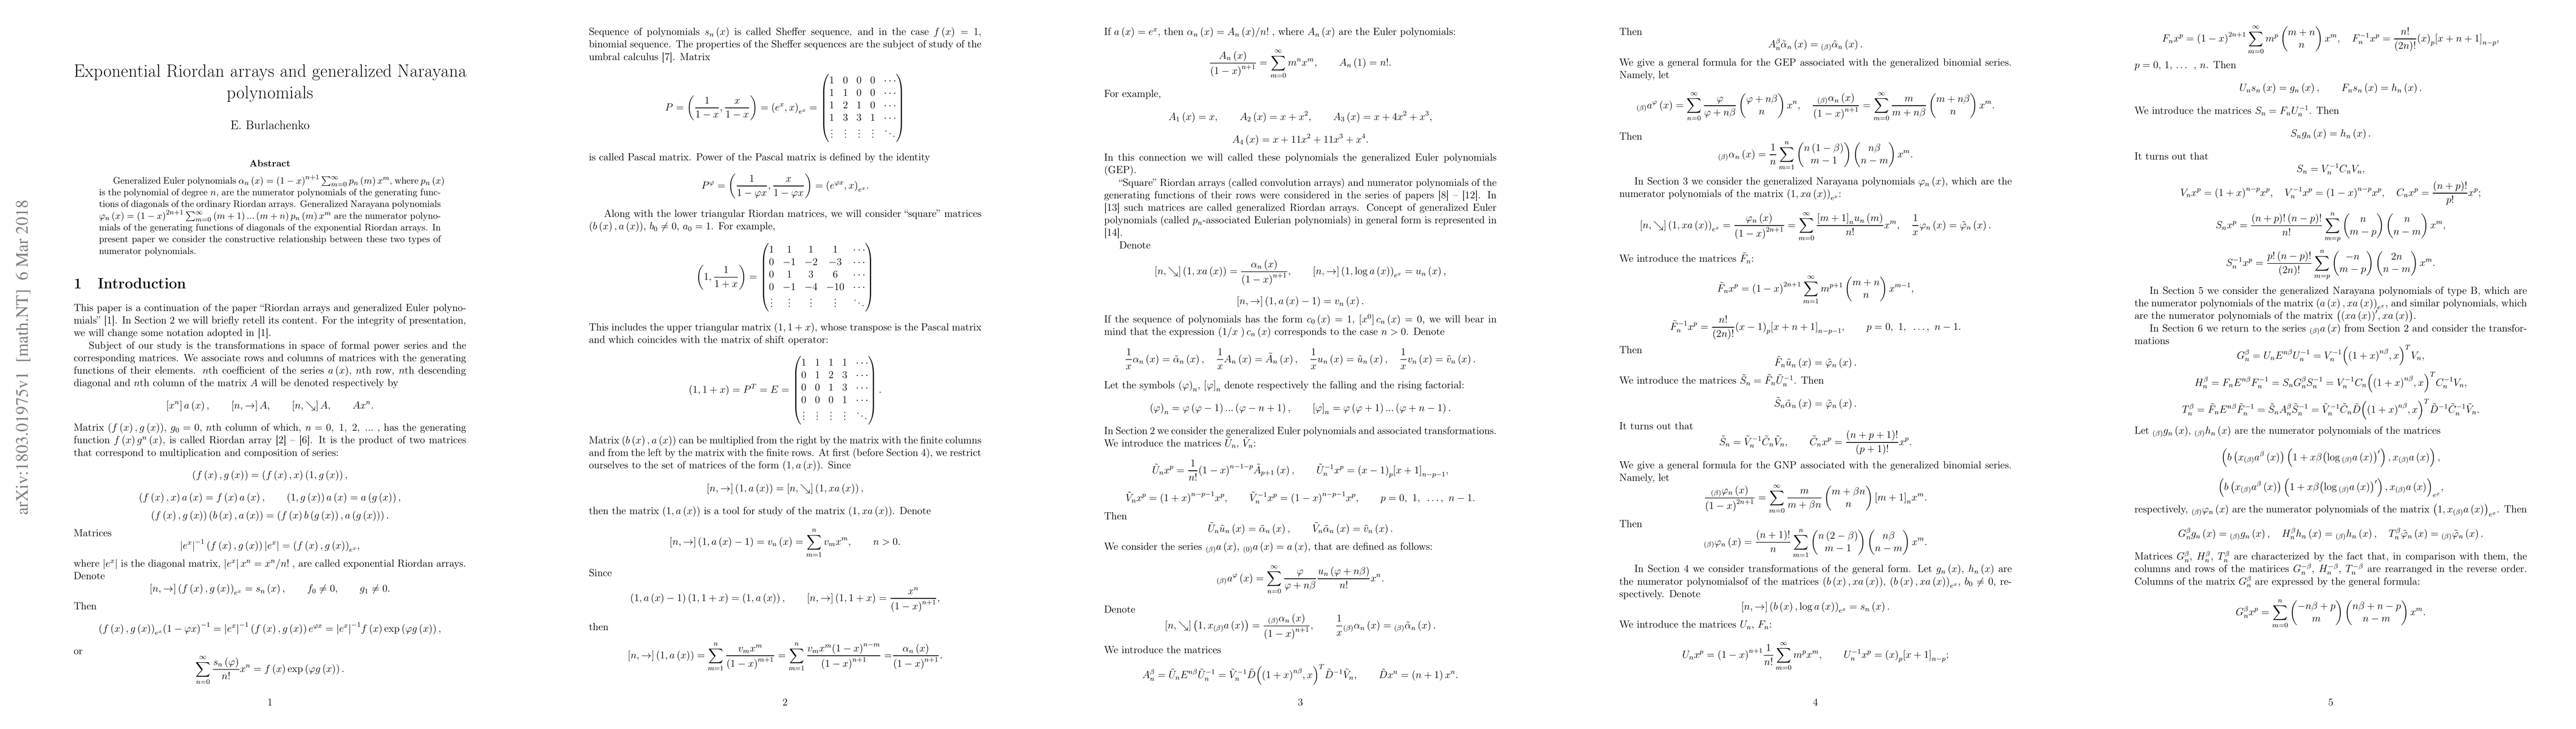 arXiv:1803.01975v1 [math.NT] 6 Mar 2018
Exponential Riordan arrays and generalized Narayana
polynomials
E. Burlachenko
Abstract
Generalized Euler polynomials α_n (x) = (1 − x)^{n+1} ∑_{m=0}^∞ p_n (m) x^m, where p_n (x)
is the polynomial of degree n, are the numerator polynomials of the generating func-
tions of diagonals of the ordinary Riordan arrays. Generalized Narayana polynomials
φ_n (x) = (1 − x)^{2n+1} ∑_{m=0}^∞ (m + 1) ... (m + n) p_n (m) x^m are the numerator polyno-
mials of the generating functions of diagonals of the exponential Riordan arrays. In
present paper we consider the constructive relationship between these two types of
numerator polynomials.
1 Introduction
This paper is a continuation of the paper “Riordan arrays and generalized Euler polyno-
mials” [1]. In Section 2 we will briefly retell its content. For the integrity of presentation,
we will change some notation adopted in [1].
Subject of our study is the transformations in space of formal power series and the
corresponding matrices. We associate rows and columns of matrices with the generating
functions of their elements. nth coefficient of the series a (x), nth row, nth descending
diagonal and nth column of the matrix A will be denoted respectively by
[x^n] a (x) , [n, →] A, [n, ↘] A, Ax^n.
Matrix (f (x) , g (x)), g_0 = 0, nth column of which, n = 0, 1, 2, ... , has the generating
function f (x) g^n (x), is called Riordan array [2] – [6]. It is the product of two matrices
that correspond to multiplication and composition of series:
(f (x) , g (x)) = (f (x) , x) (1, g (x)) ,
(f (x) , x) a (x) = f (x) a (x) , (1, g (x)) a (x) = a (g (x)) ,
(f (x) , g (x)) (b (x) , a (x)) = (f (x) b (g (x)) , a (g (x))) .
Matrices
|e^x|^{−1} (f (x) , g (x)) |e^x| = (f (x) , g (x))_{e^x},
where |e^x| is the diagonal matrix, |e^x| x^n = x^n/n! , are called exponential Riordan arrays.
Denote
[n, →] (f (x) , g (x))_{e^x} = s_n (x) , f_0 ≠ 0, g_1 ≠ 0.
Then
(f (x) , g (x))_{e^x} (1 − φx)^{−1} = |e^x|^{−1} (f (x) , g (x)) e^{φx} = |e^x|^{−1} f (x) exp (φg (x)) ,
or
∑_{n=0}^∞ s_n (φ)/n! x^n = f (x) exp (φg (x)) .
1
Sequence of polynomials s_n (x) is called Sheffer sequence, and in the case f (x) = 1,
binomial sequence. The properties of the Sheffer sequences are the subject of study of the
umbral calculus [7]. Matrix
P = (1/(1 − x), x/(1 − x)) = (e^x, x)_{e^x} =
1 0 0 0 ⋯
1 1 0 0 ⋯
1 2 1 0 ⋯
1 3 3 1 ⋯
⋮ ⋮ ⋮ ⋮ ⋱
is called Pascal matrix. Power of the Pascal matrix is defined by the identity
P^φ = (1/(1 − φx), x/(1 − φx)) = (e^{φx}, x)_{e^x}.
Along with the lower triangular Riordan matrices, we will consider “square” matrices
(b (x) , a (x)), b_0 ≠ 0, a_0 = 1. For example,
(1, 1/(1 + x)) =
1 1 1 1 ⋯
0 −1 −2 −3 ⋯
0 1 3 6 ⋯
0 −1 −4 −10 ⋯
⋮ ⋮ ⋮ ⋮ ⋱
This includes the upper triangular matrix (1, 1 + x), whose transpose is the Pascal matrix
and which coincides with the matrix of shift operator:
(1, 1 + x) = P^T = E =
1 1 1 1 ⋯
0 1 2 3 ⋯
0 0 1 3 ⋯
0 0 0 1 ⋯
⋮ ⋮ ⋮ ⋮ ⋱ .
Matrix (b (x) , a (x)) can be multiplied from the right by the matrix with the finite columns
and from the left by the matrix with the finite rows. At first (before Section 4), we restrict
ourselves to the set of matrices of the form (1, a (x)). Since
[n, →] (1, a (x)) = [n, ↘] (1, xa (x)) ,
then the matrix (1, a (x)) is a tool for study of the matrix (1, xa (x)). Denote
[n, →] (1, a (x) − 1) = v_n (x) = ∑_{m=1}^n v_m x^m, n > 0.
Since
(1, a (x) − 1) (1, 1 + x) = (1, a (x)) , [n, →] (1, 1 + x) = x^n/(1 − x)^{n+1},
then
[n, →] (1, a (x)) = ∑_{m=1}^n v_m x^m/(1 − x)^{m+1} = ∑_{m=1}^n v_m x^m (1 − x)^{n−m}/(1 − x)^{n+1} = α_n (x)/(1 − x)^{n+1}.
2
If a (x) = e^x, then α_n (x) = A_n (x)/n! , where A_n (x) are the Euler polynomials:
A_n (x)/(1 − x)^{n+1} = ∑_{m=0}^∞ m^n x^m, A_n (1) = n!.
For example,
A_1 (x) = x, A_2 (x) = x + x^2, A_3 (x) = x + 4x^2 + x^3,
A_4 (x) = x + 11x^2 + 11x^3 + x^4.
In this connection we will called these polynomials the generalized Euler polynomials
(GEP).
“Square” Riordan arrays (called convolution arrays) and numerator polynomials of the
generating functions of their rows were considered in the series of papers [8] – [12]. In
[13] such matrices are called generalized Riordan arrays. Concept of generalized Euler
polynomials (called p_n-associated Eulerian polynomials) in general form is represented in
[14].
Denote
[n, ↘] (1, xa (x)) = α_n (x)/(1 − x)^{n+1}, [n, →] (1, log a (x))_{e^x} = u_n (x) ,
[n, →] (1, a (x) − 1) = v_n (x) .
If the sequence of polynomials has the form c_0 (x) = 1, [x^0] c_n (x) = 0, we will bear in
mind that the expression (1/x ) c_n (x) corresponds to the case n > 0. Denote
1/x α_n (x) = α̃_n (x) , 1/x A_n (x) = Ã_n (x) , 1/x u_n (x) = ũ_n (x) , 1/x v_n (x) = ṽ_n (x) .
Let the symbols (φ)_n, [φ]_n denote respectively the falling and the rising factorial:
(φ)_n = φ (φ − 1) ... (φ − n + 1) , [φ]_n = φ (φ + 1) ... (φ + n − 1) .
In Section 2 we consider the generalized Euler polynomials and associated transformations.
We introduce the matrices Ũ_n, Ṽ_n:
Ũ_n x^p = 1/n! (1 − x)^{n−1−p} Ã_{p+1} (x) , Ũ_n^{−1} x^p = (x − 1)_p [x + 1]_{n−p−1},
Ṽ_n x^p = (1 + x)^{n−p−1} x^p, Ṽ_n^{−1} x^p = (1 − x)^{n−p−1} x^p, p = 0, 1, ... , n − 1.
Then
Ũ_n ũ_n (x) = α̃_n (x) , Ṽ_n α̃_n (x) = ṽ_n (x) .
We consider the series _{(β)}a (x), _{(0)}a (x) = a (x), that are defined as follows:
_{(β)}a^φ (x) = ∑_{n=0}^∞ φ/(φ + nβ) u_n (φ + nβ)/n! x^n.
Denote
[n, ↘] (1, x_{(β)}a (x)) = _{(β)}α_n (x)/(1 − x)^{n+1}, 1/x _{(β)}α_n (x) = _{(β)}α̃_n (x) .
We introduce the matrices
A_n^β = Ũ_n E^{nβ} Ũ_n^{−1} = Ṽ_n^{−1} D̃ ((1 + x)^{nβ}, x)^T D̃^{−1} Ṽ_n, D̃x^n = (n + 1) x^n.
3
Then
A_n^β α̃_n (x) = _{(β)}α̃_n (x) .
We give a general formula for the GEP associated with the generalized binomial series.
Namely, let
_{(β)}a^φ (x) = ∑_{n=0}^∞ φ/(φ + nβ) \binom{φ + nβ}{n} x^n, _{(β)}α_n (x)/(1 − x)^{n+1} = ∑_{m=0}^∞ m/(m + nβ) \binom{m + nβ}{n} x^m.
Then
_{(β)}α_n (x) = 1/n ∑_{m=1}^n \binom{n (1 − β)}{m − 1} \binom{nβ}{n − m} x^m.
In Section 3 we consider the generalized Narayana polynomials φ_n (x), which are the
numerator polynomials of the matrix (1, xa (x))_{e^x}:
[n, ↘] (1, xa (x))_{e^x} = φ_n (x)/(1 − x)^{2n+1} = ∑_{m=0}^∞ [m + 1]_n u_n (m)/n! x^m, 1/x φ_n (x) = φ̃_n (x) .
We introduce the matrices F̃_n:
F̃_n x^p = (1 − x)^{2n+1} ∑_{m=1}^∞ m^{p+1} \binom{m + n}{n} x^{m−1},
F̃_n^{−1} x^p = n!/(2n)! (x − 1)_p [x + n + 1]_{n−p−1}, p = 0, 1, ... , n − 1.
Then
F̃_n ũ_n (x) = φ̃_n (x) .
We introduce the matrices S̃_n = F̃_n Ũ_n^{−1}. Then
S̃_n α̃_n (x) = φ̃_n (x) .
It turns out that
S̃_n = Ṽ_n^{−1} C̃_n Ṽ_n, C̃_n x^p = (n + p + 1)!/(p + 1)! x^p.
We give a general formula for the GNP associated with the generalized binomial series.
Namely, let
_{(β)}φ_n (x)/(1 − x)^{2n+1} = ∑_{m=0}^∞ m/(m + βn) \binom{m + βn}{n} [m + 1]_n x^m.
Then
_{(β)}φ_n (x) = (n + 1)!/n ∑_{m=1}^n \binom{n (2 − β)}{m − 1} \binom{nβ}{n − m} x^m.
In Section 4 we consider transformations of the general form. Let g_n (x), h_n (x) are
the numerator polynomialsof of the matrices (b (x) , xa (x)), (b (x) , xa (x))_{e^x}, b_0 ≠ 0, re-
spectively. Denote
[n, →] (b (x) , log a (x))_{e^x} = s_n (x) .
We introduce the matrices U_n, F_n:
U_n x^p = (1 − x)^{n+1} 1/n! ∑_{m=0}^∞ m^p x^m, U_n^{−1} x^p = (x)_p [x + 1]_{n−p};
4
F_n x^p = (1 − x)^{2n+1} ∑_{m=0}^∞ m^p \binom{m + n}{n} x^m, F_n^{−1} x^p = n!/(2n)! (x)_p [x + n + 1]_{n−p},
p = 0, 1, ... , n. Then
U_n s_n (x) = g_n (x) , F_n s_n (x) = h_n (x) .
We introduce the matrices S_n = F_n U_n^{−1}. Then
S_n g_n (x) = h_n (x) .
It turns out that
S_n = V_n^{−1} C_n V_n,
V_n x^p = (1 + x)^{n−p} x^p, V_n^{−1} x^p = (1 − x)^{n−p} x^p, C_n x^p = (n + p)!/p! x^p;
S_n x^p = (n + p)! (n − p)!/n! ∑_{m=p}^n \binom{n}{m − p} \binom{n}{n − m} x^m,
S_n^{−1} x^p = p! (n − p)!/(2n)! ∑_{m=p}^n \binom{−n}{m − p} \binom{2n}{n − m} x^m.
In Section 5 we consider the generalized Narayana polynomials of type B, which are
the numerator polynomials of the matrix (a (x) , xa (x))_{e^x}, and similar polynomials, which
are the numerator polynomials of the matrix ((xa (x))′, xa (x)).
In Section 6 we return to the series _{(β)}a (x) from Section 2 and consider the transfor-
mations
G_n^β = U_n E^{nβ} U_n^{−1} = V_n^{−1} ((1 + x)^{nβ}, x)^T V_n,
H_n^β = F_n E^{nβ} F_n^{−1} = S_n G_n^β S_n^{−1} = V_n^{−1} C_n ((1 + x)^{nβ}, x)^T C_n^{−1} V_n,
T_n^β = F̃_n E^{nβ} F̃_n^{−1} = S̃_n A_n^β S̃_n^{−1} = Ṽ_n^{−1} C̃_n D̃ ((1 + x)^{nβ}, x)^T D̃^{−1} C̃_n^{−1} Ṽ_n.
Let _{(β)}g_n (x), _{(β)}h_n (x) are the numerator polynomials of the matrices
(b (x_{(β)}a^β (x)) (1 + xβ(log _{(β)}a (x))′) , x_{(β)}a (x)) ,
(b (x_{(β)}a^β (x)) (1 + xβ(log _{(β)}a (x))′) , x_{(β)}a (x))_{e^x},
respectively, _{(β)}φ_n (x) are the numerator polynomials of the matrix (1, x_{(β)}a (x))_{e^x}. Then
G_n^β g_n (x) = _{(β)}g_n (x) , H_n^β h_n (x) = _{(β)}h_n (x) , T_n^β φ̃_n (x) = _{(β)}φ̃_n (x) .
Matrices G_n^β, H_n^β, T_n^β are characterized by the fact that, in comparison with them, the
columns and rows of the matrices G_n^{−β}, H_n^{−β}, T_n^{−β} are rearranged in the reverse order.
Columns of the matrix G_n^β are expressed by the general formula:
G_n^β x^p = ∑_{m=0}^n \binom{−nβ + p}{m} \binom{nβ + n − p}{n − m} x^m.
5